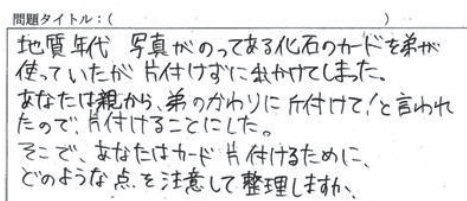 問題タイトル:( )
地質年代 写真がのってある化石のカードを弟が
使っていたが片付けずに出かけてしまった。
あなたは親から、弟のかわりに片付けて!と言われ
たので、片付けることにした。
そこで、あなたはカード片付けるために、
どのような点を注意して整理しますか、